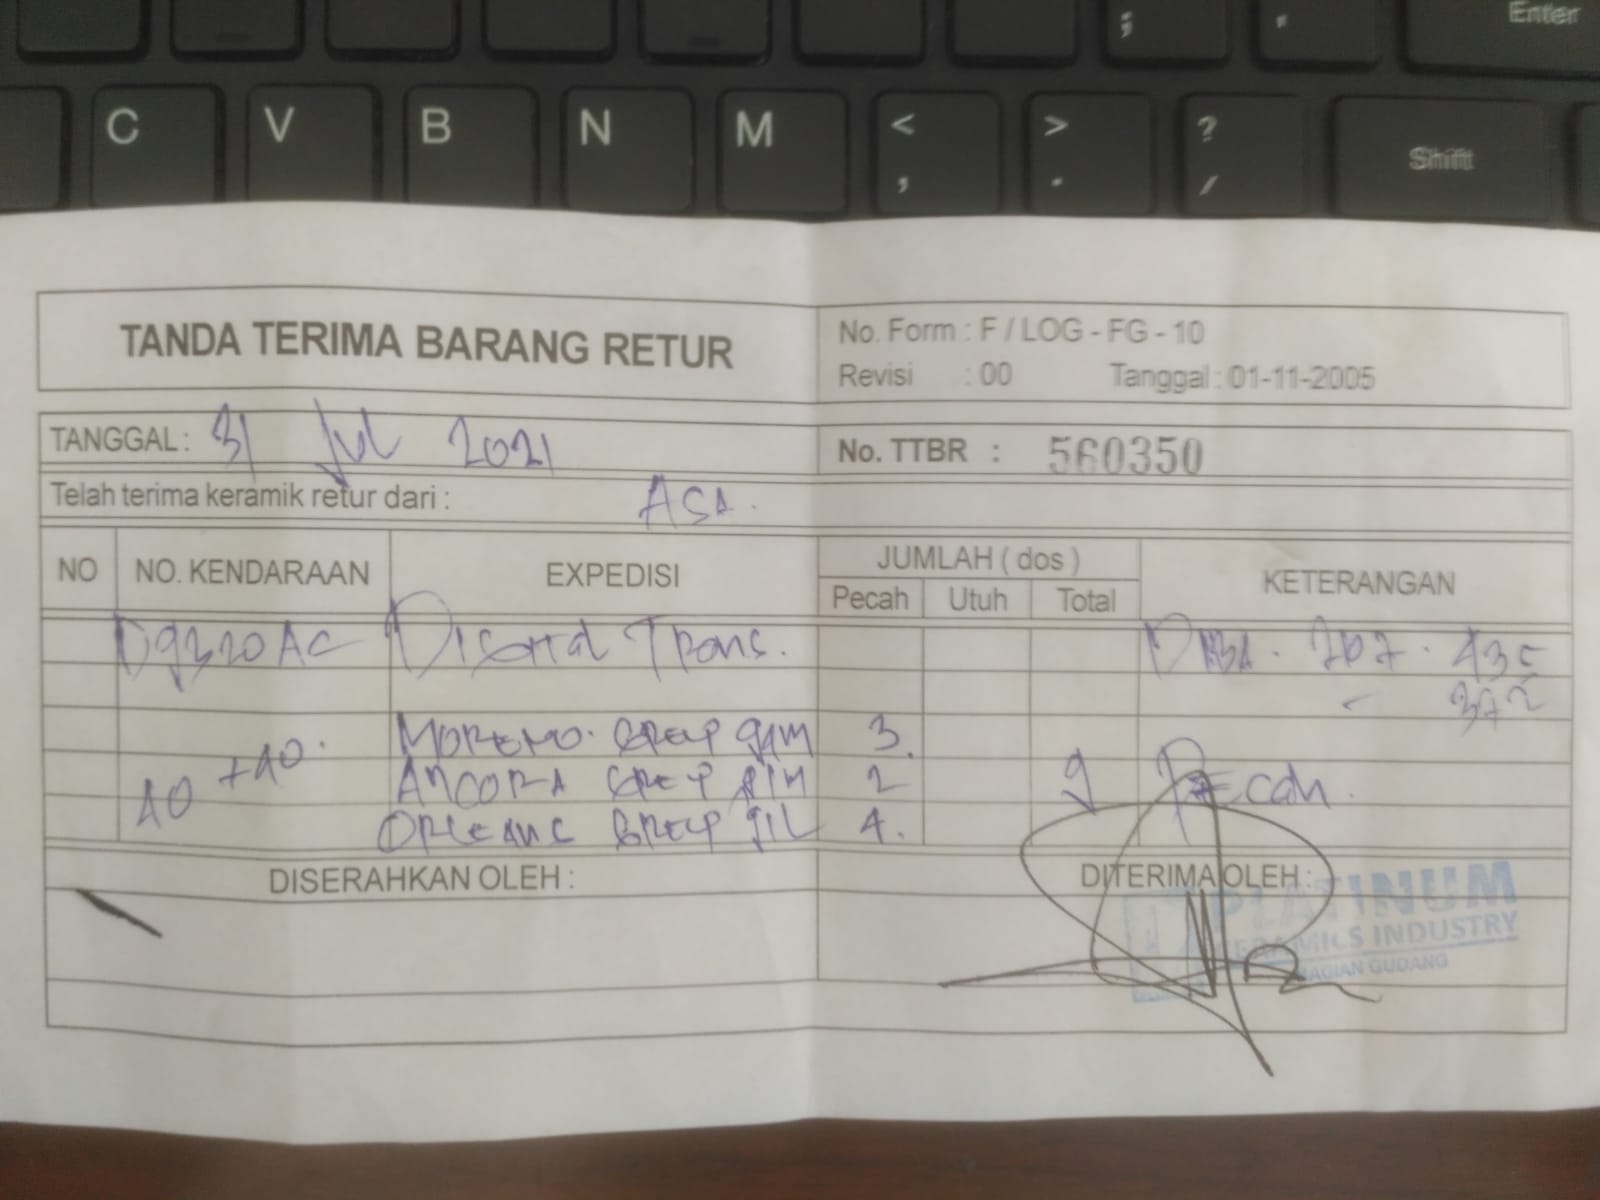 Enter
;
C V B N M < > ? Shift
, . /
TANDA TERIMA BARANG RETUR
No. Form : F / LOG - FG - 10
Revisi : 00 Tanggal : 01-11-2005
TANGGAL : 31 Jul 2021
No. TTBR : 560350
Telah terima keramik retur dari : ASA.
NO NO. KENDARAAN EXPEDISI JUMLAH ( dos ) KETERANGAN
Pecah Utuh Total
Trans.
MORENO GREY 3.
40 + 40. ANCORA GREY 2 9 Pecah.
ORLEANS GREY 4.
DISERAHKAN OLEH : DITERIMA OLEH :
PLATINUM
CERAMICS INDUSTRY
BAGIAN GUDANG